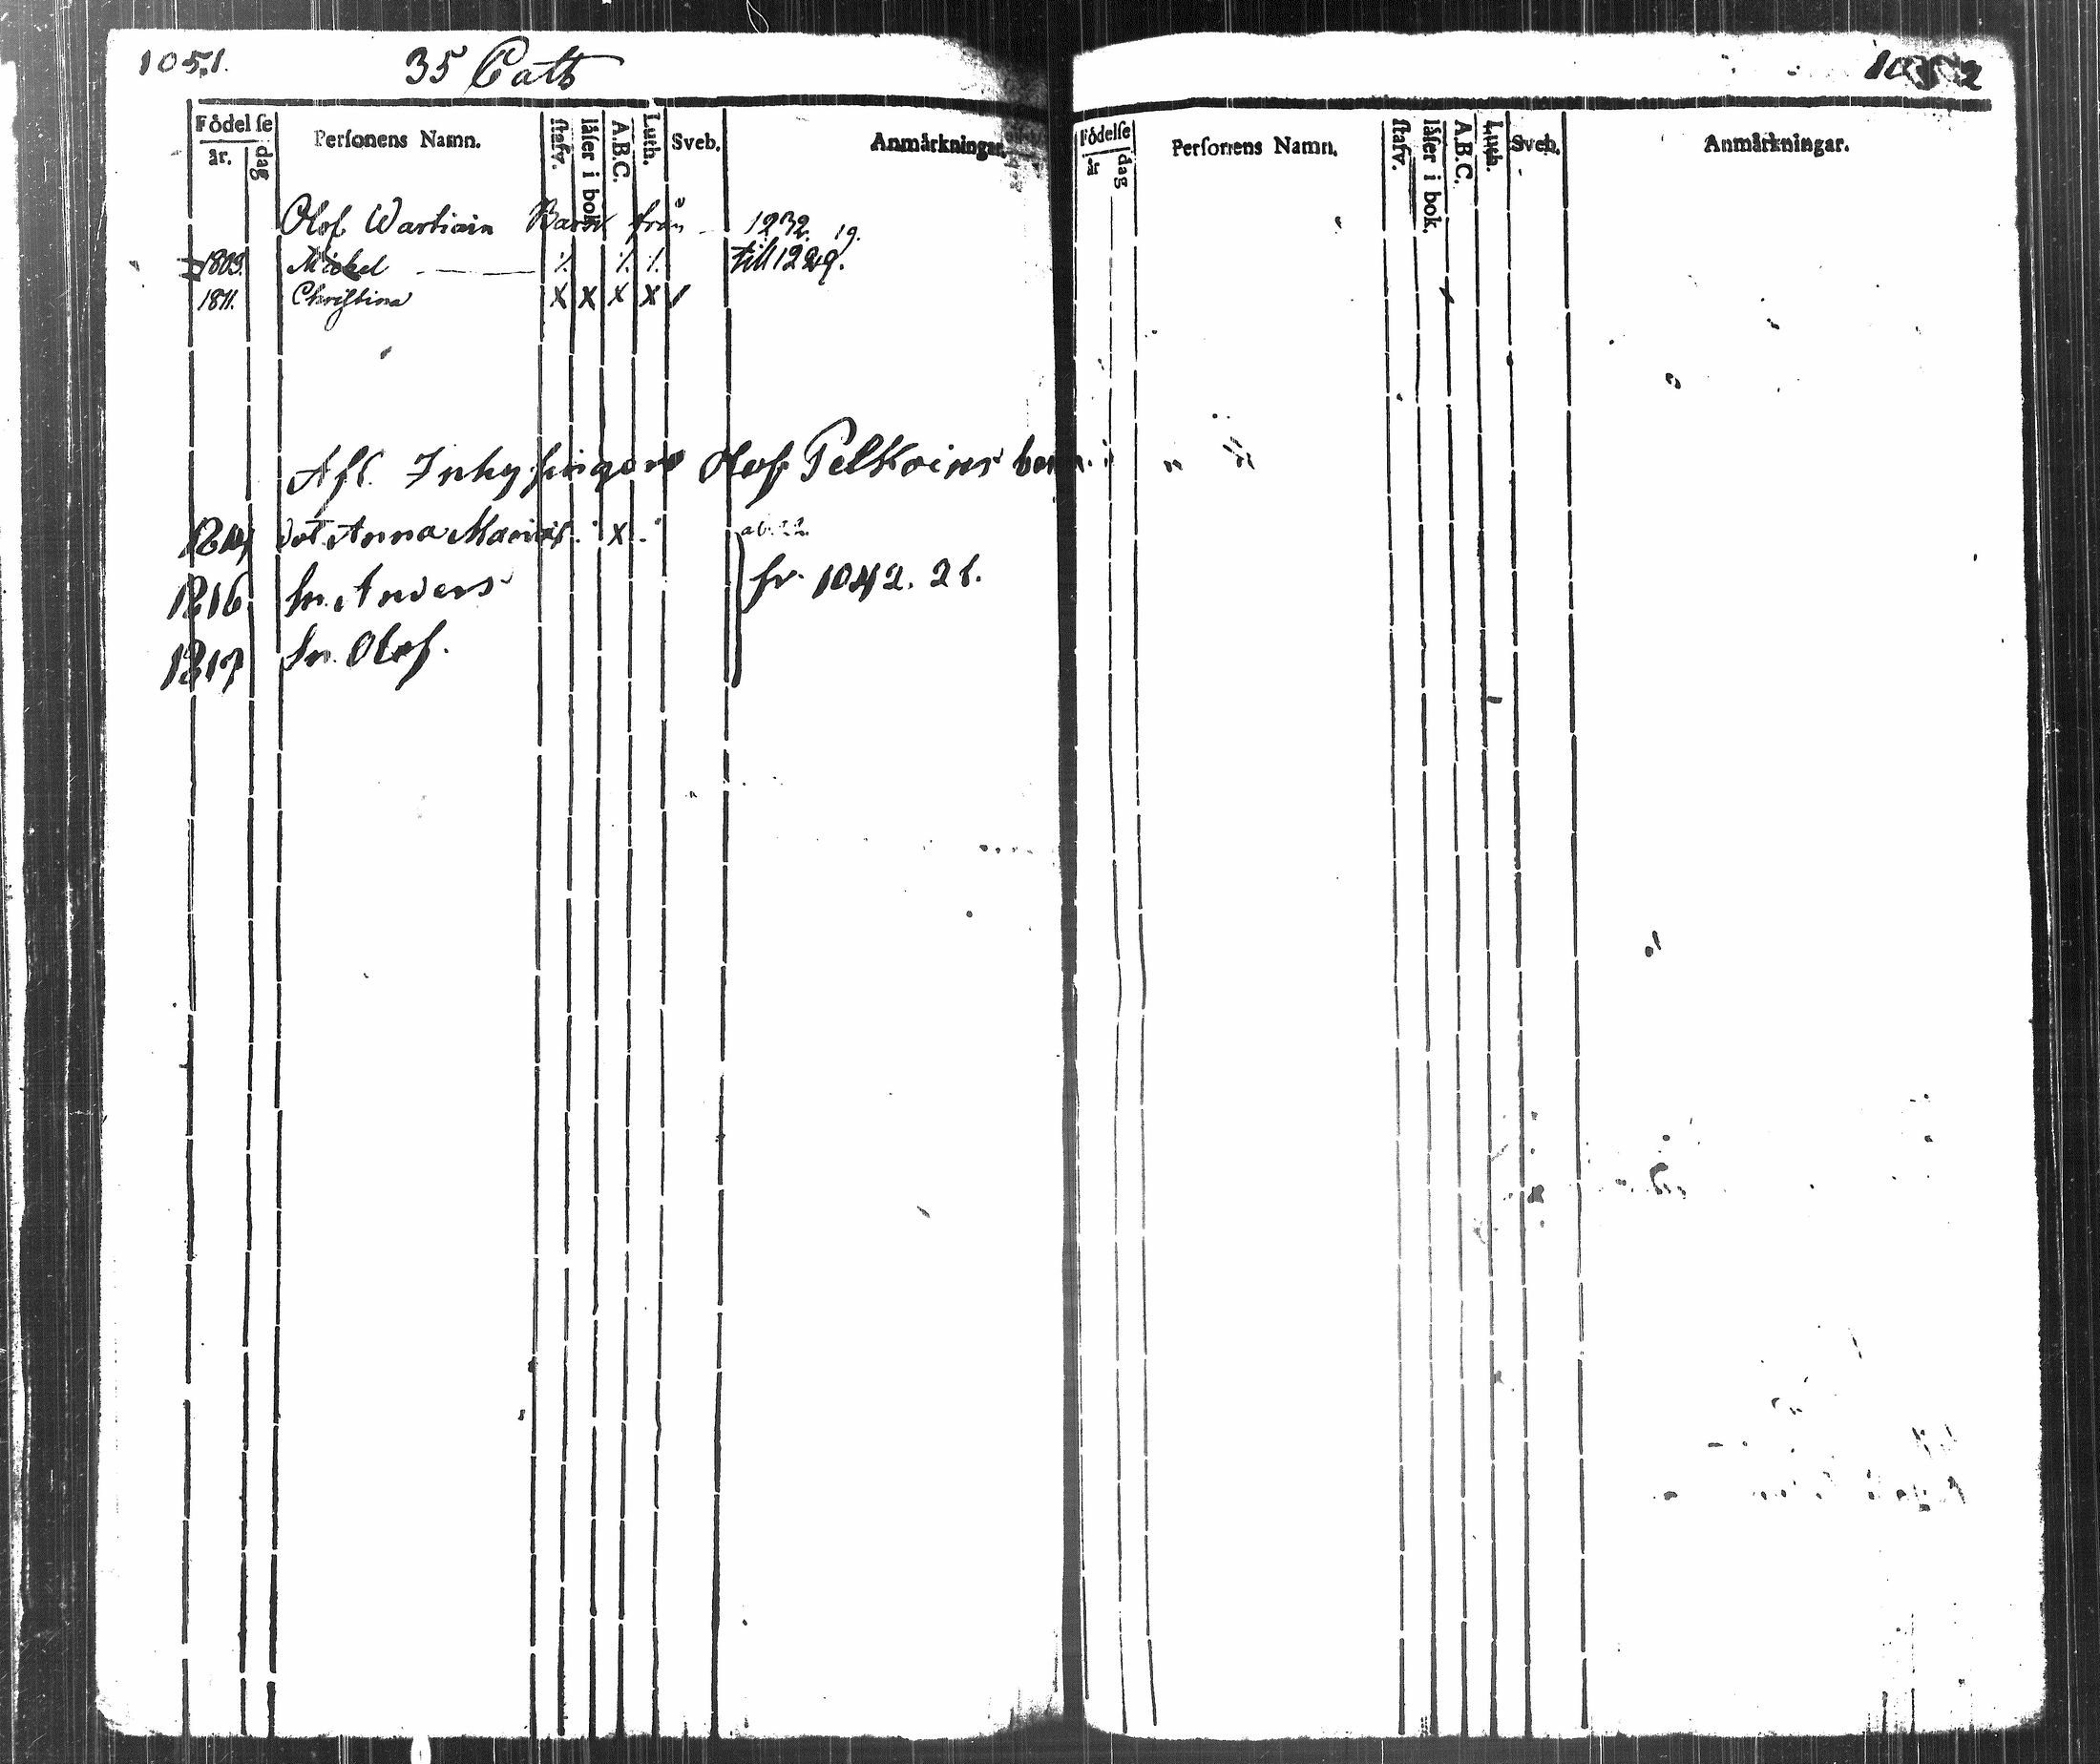 1051.
35 Catts
Födelse
år.
dag
Personens Namn.
stafv.
läser i bok.
A.B.C.
Luth.
Sveb.
Anmärkningar.
Olof Wartiain Barn från 1232.
1809. Mickel — % % % till 1229. 19.
1811. Christina X X X X
Afl. Inhysingens Olof Pelkoins barn.
1814 Dot. Anna Maria X
1816 Sn. Anders fr. 1042. 21.
1817 Sn. Olof.
1052
Födelse
år
dag
Personens Namn.
stafv.
läser i bok.
A.B.C.
Luth.
Sveb.
Anmärkningar.